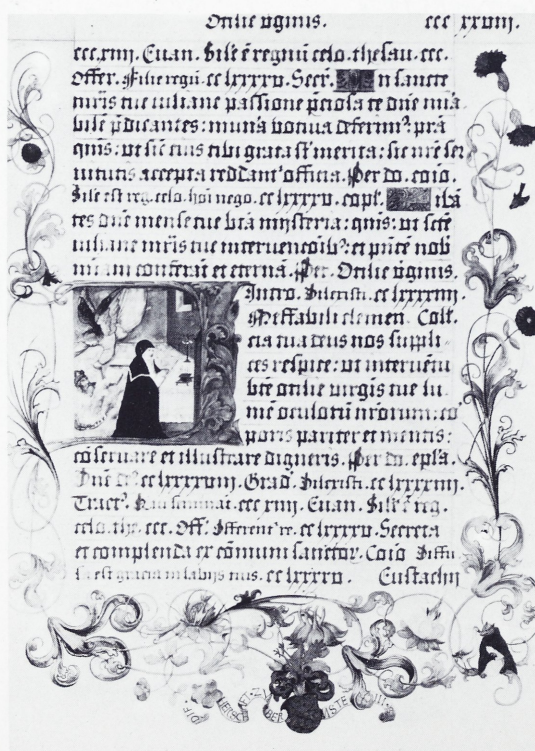 Otilie v̄ginis. ccc xxviij.
ccc.xiiij. Euan. Sile ē regnū celo. thesau. ccc.
Offer. Filie regū. cc lxxxv. Secr̄. In sancte
mr̄is tue iuliane passione p̄ciosa te dn̄e mira
bilē p̄dicantes: mun'a votiua deferim⁹. pr̄a
qm̄s: vt sic eius tibi grata sūt merita: sic nr̄e ser
uitutis accepta reddant' officia. Per do. cōio.
Sile est reg. celo. hoi nego. cc lxxxv. copl.
tes dn̄e mense tue btā mysteria: qm̄s: vt scē
iuliane mr̄is tue intercessioib⁹: et pn̄tē nob̄
mīam conferāt et eternā. Per. Otilie v̄ginis.
Intro. Dilexisti. cc lxxxiiij.
Ineffabili clemen. Coll.
cia tua deus nos suppli
ces respice: vt interuētu
btē otilie virgīs tue lu
mē oculorū nrorum: co
poris pariter et mentis:
cōseruare et illustrare digneris. Per dn̄. ep̄la.
Grad. Dilexisti. cc lxxxiiij.
Tract⁹. ccc xiiij. Euan. Sile ē reg.
celo. the. ccc. Off. Offerent' re. cc lxxxv. Secreta
et complenda ex cōmuni sanctor. Cōio Diffu
sa est gracia in labijs tuis. cc lxxxv. Eustachij